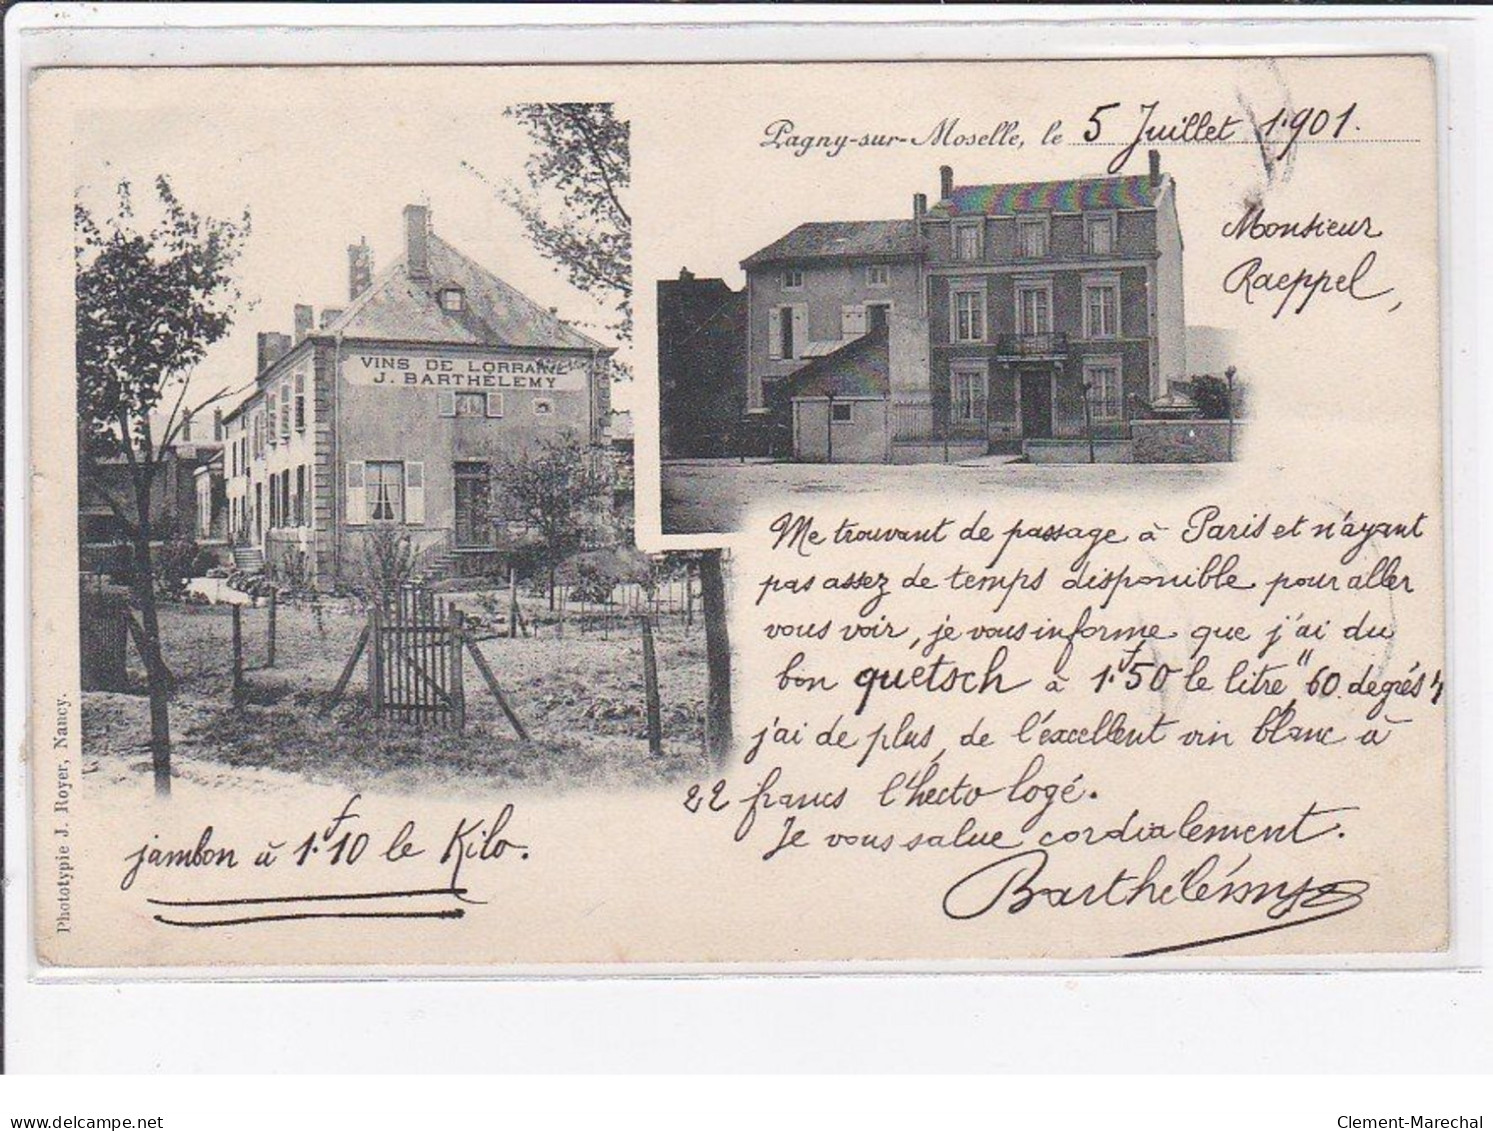 Pagny-sur-Moselle, le 5 Juillet 1901.
Monsieur
Raeppel,
VINS DE LORRAINE
J. BARTHÉLEMY
Me trouvant de passage à Paris et n'ayant
pas assez de temps disponible pour aller
vous voir, je vous informe que j'ai du
bon quetsch à 1f50 le litre "60 degrés"
j'ai de plus, de l'excellent vin blanc à
22 francs l'hecto logé.
Je vous salue cordialement.
Barthélemy
jambon à 1f10 le Kilo.
Phototypie J. Royer, Nancy.
delcampe.net
Clement-Marechal